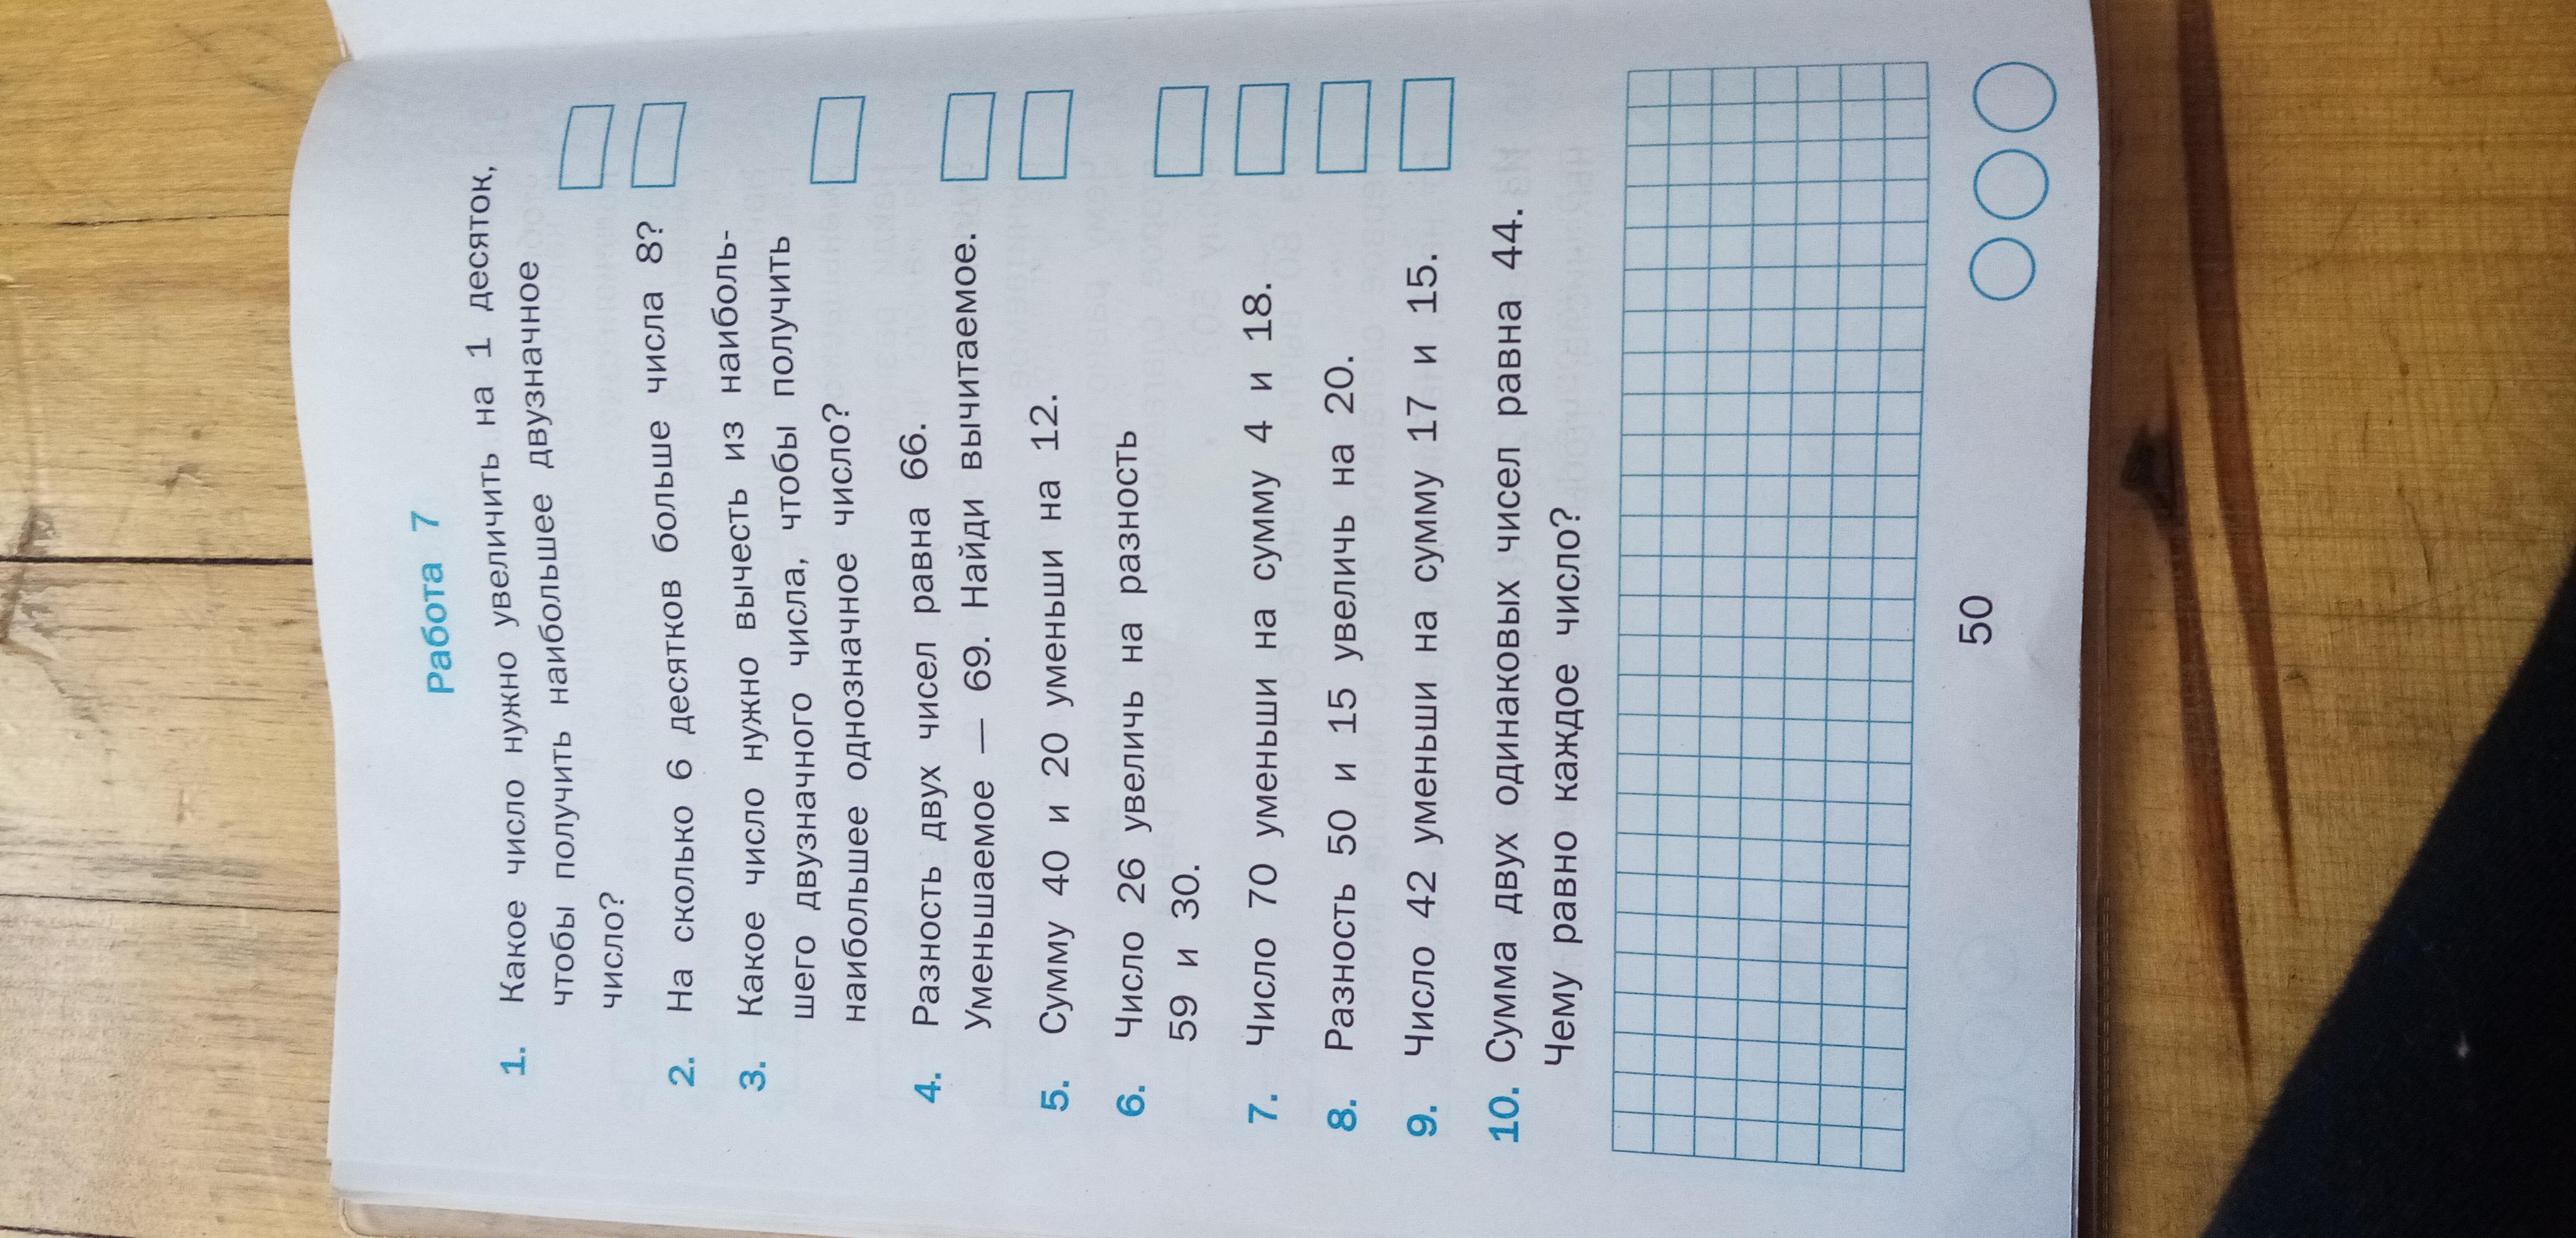 Работа 7
1. Какое число нужно увеличить на 1 десяток,
чтобы получить наибольшее двузначное
число?
2. На сколько 6 десятков больше числа 8?
3. Какое число нужно вычесть из наиболь-
шего двузначного числа, чтобы получить
наибольшее однозначное число?
4. Разность двух чисел равна 66.
Уменьшаемое — 69. Найди вычитаемое.
5. Сумму 40 и 20 уменьши на 12.
6. Число 26 увеличь на разность
59 и 30.
7. Число 70 уменьши на сумму 4 и 18.
8. Разность 50 и 15 увеличь на 20.
9. Число 42 уменьши на сумму 17 и 15.
10. Сумма двух одинаковых чисел равна 44.
Чему равно каждое число?
50